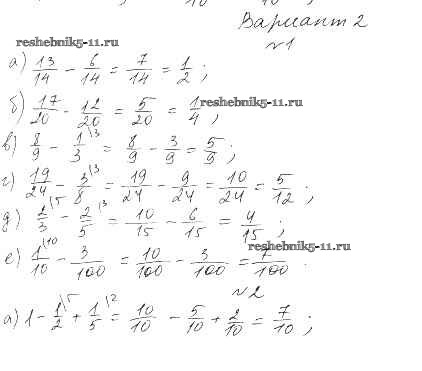 Вариант 2
reshebnik5-11.ru
№1
а) 13/14 - 6/14 = 7/14 = 1/2 ;
б) 17/20 - 12/20 = 5/20 = 1/4 ;
reshebnik5-11.ru
в) 8/9 - 1/3 \3 = 8/9 - 3/9 = 5/9 ;
г) 19/24 - 3/8 \3 = 19/24 - 9/24 = 10/24 = 5/12 ;
д) 2/3 \5 - 2/5 \3 = 10/15 - 6/15 = 4/15 ;
reshebnik5-11.ru
е) 1/10 \10 - 3/100 = 10/100 - 3/100 = 7/100 .
№2
а) 1 - 1/2 \5 + 1/5 \2 = 10/10 - 5/10 + 2/10 = 7/10 ;